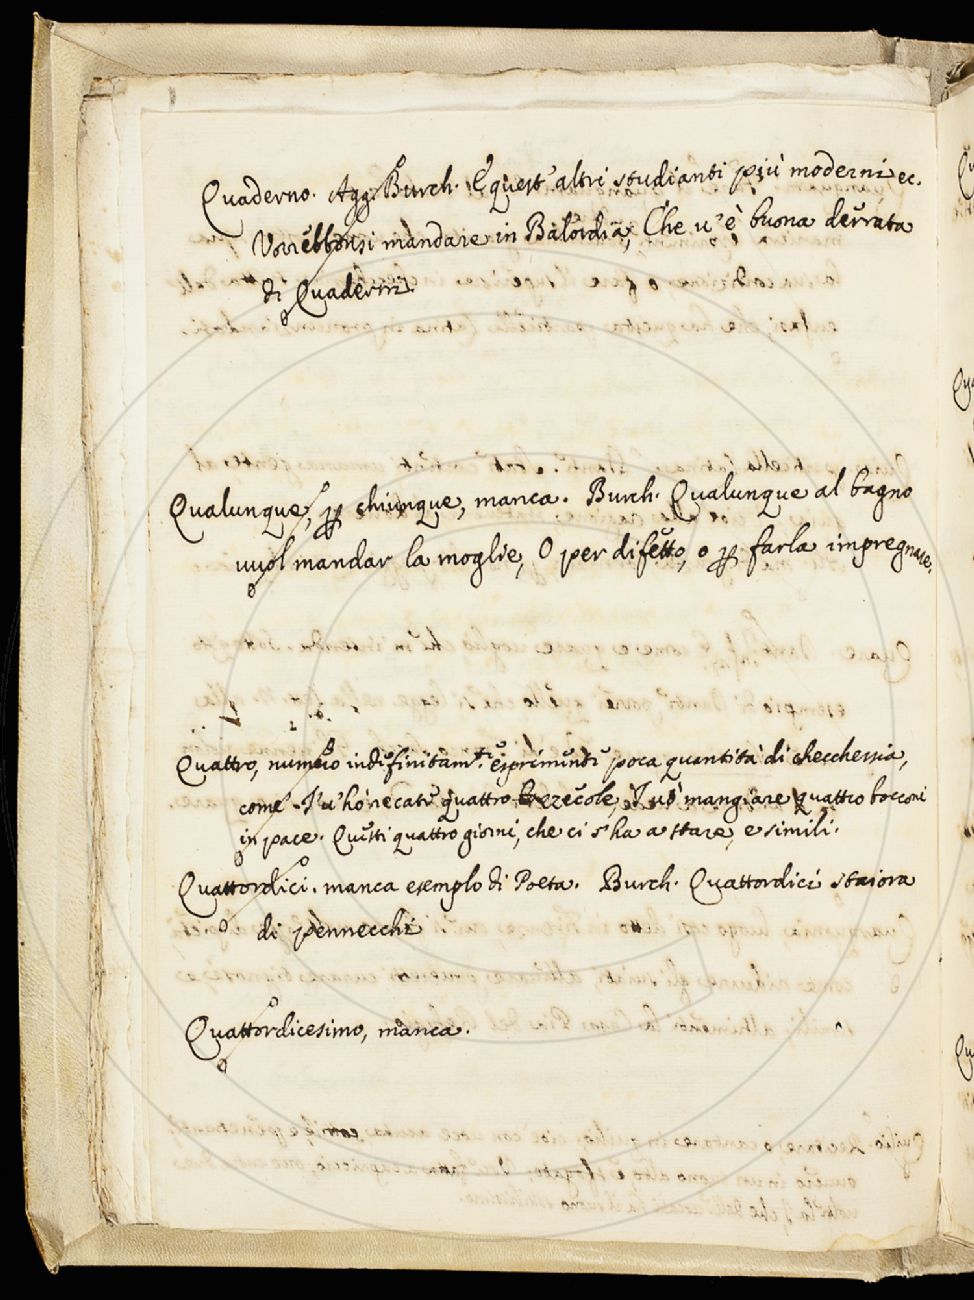 Quaderno. Agg. Burch. E quest' altri studianti più moderni ec.
Vorrebbonsi mandare in Balordia, Che v' è buona derrata
di Quaderni.
Qualunque, p chiunque, manca. Burch. Qualunque al bagno
vuol mandar la moglie, O per difetto, o p farla impregnare.
Quattro, numero indifinitam.te esprimendi poca quantità di checchessia,
come. I' v' hò recate quattro bezzecole, I vo' mangiare quattro bocconi
in pace. Questi quattro giorni, che ci s' ha a stare, e simili.
Quattordici. manca esemplo di Poeta. Burch. Quattordici staiora
di pennecchi
Quattordicesimo, manca.